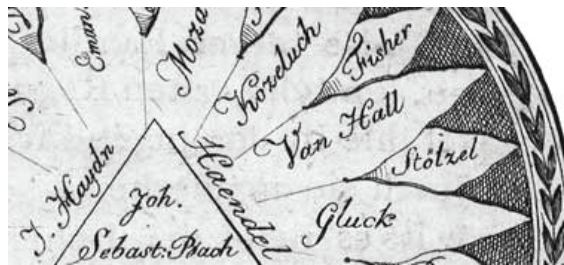 Eman.
Moza
Kozeluch
Fisher
Van Hall
Stölzel
Gluck
Haendel
J. Haydn
Joh.
Sebast: Bach